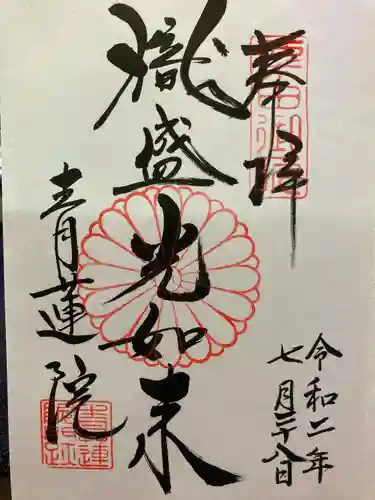 奉拝
熾盛光如来
青蓮院
令和二年
七月二十八日